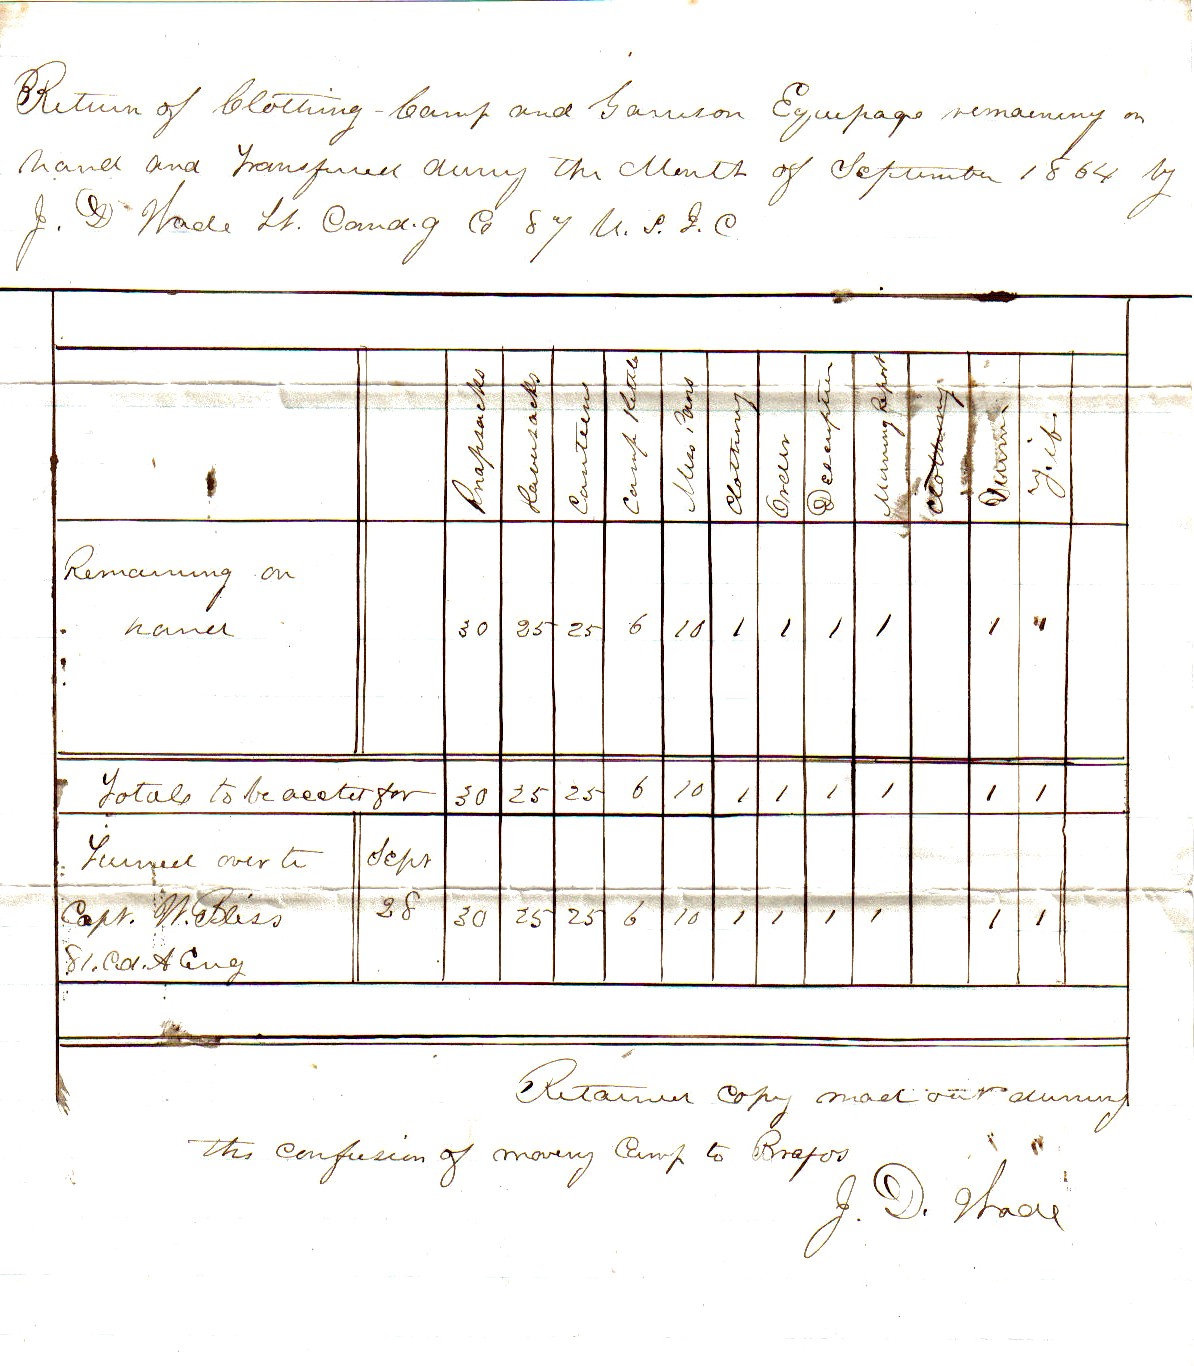 Return of Clothing - Camp and Garrison Equipage remaining on
hand and Transferred during the Month of September 1864 by
J. D Wade Lt. Comd.g Co 87 U. S. I. C
Knapsacks
Haversacks
Canteens
Camp Kettle
Mess Pans
Clothing
Order
Descriptive
Morning Report
Clothing
Drum
Fife
Remaining on
hand 30 25 25 6 10 1 1 1 1 1 "
Totals to be acctd for 30 25 25 6 10 1 1 1 1 1 1
Turned over to Sept
Capt. W. Bliss 28 30 25 25 6 10 1 1 1 1 1 1
81. Cd. A Eng
Retained copy mad out durring
the confusion of moving Camp to Brazos
J. D. Wade